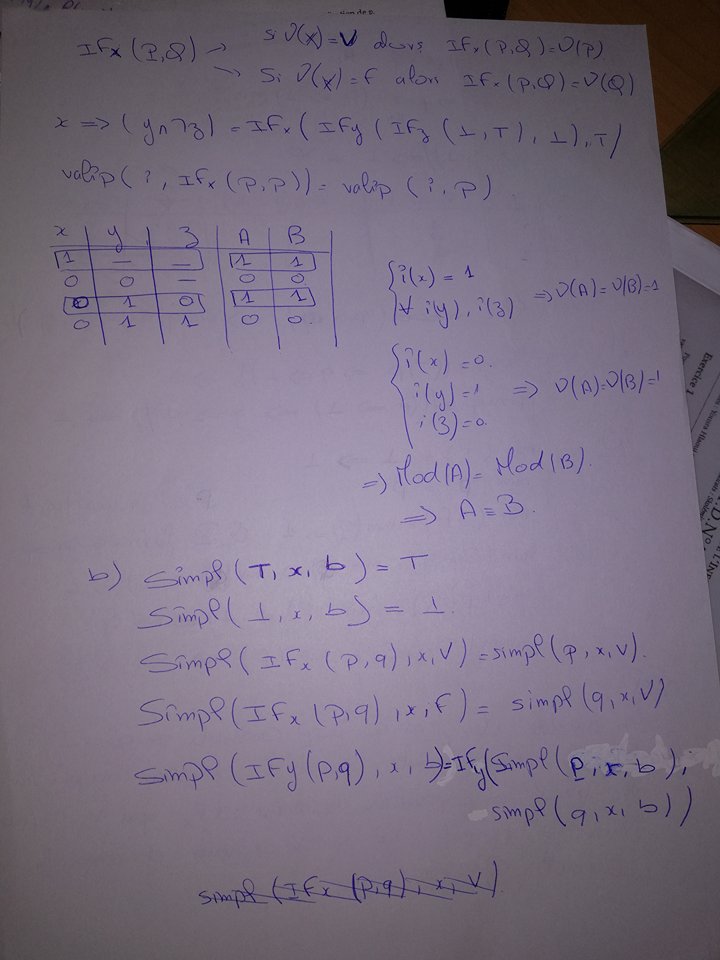 IFx (P,Q) → si ʋ(x)=V alors IFx(P,Q)=ʋ(P)
→ Si ʋ(x)=f alors IFx(P,Q)=ʋ(Q)
x ⇒ (y∧¬z) = IFx( IFy ( IFz (⊥,T), ⊥),T)
valip( i, IFx(p,p)) = valip (i,p)
x y z A B
1 — — 1 1
0 0 — 0 0
0 1 0 1 1
0 1 1 0 0
{ i(x) = 1
∀ i(y), i(z) ⇒ ʋ(A)=ʋ(B)=1
{ i(x) = 0.
i(y)=1 ⇒ ʋ(A)=ʋ(B)=1
i(z)=0.
⇒ Mod(A) = Mod(B).
⇒ A ≡ B.
b) Simpl(T, x, b) = T
Simpl(⊥, x, b) = ⊥.
Simpl( IFx (p,q), x, V) = simpl(p, x, V).
Simpl(IFx (p,q), x, F) = simpl (q, x, V)
Simpl (IFy(p,q), x, b)=IFy(Simpl (p, x, b),
simpl(q, x, b))
simpl (IFx (p,q), x, V).
Exercice 1